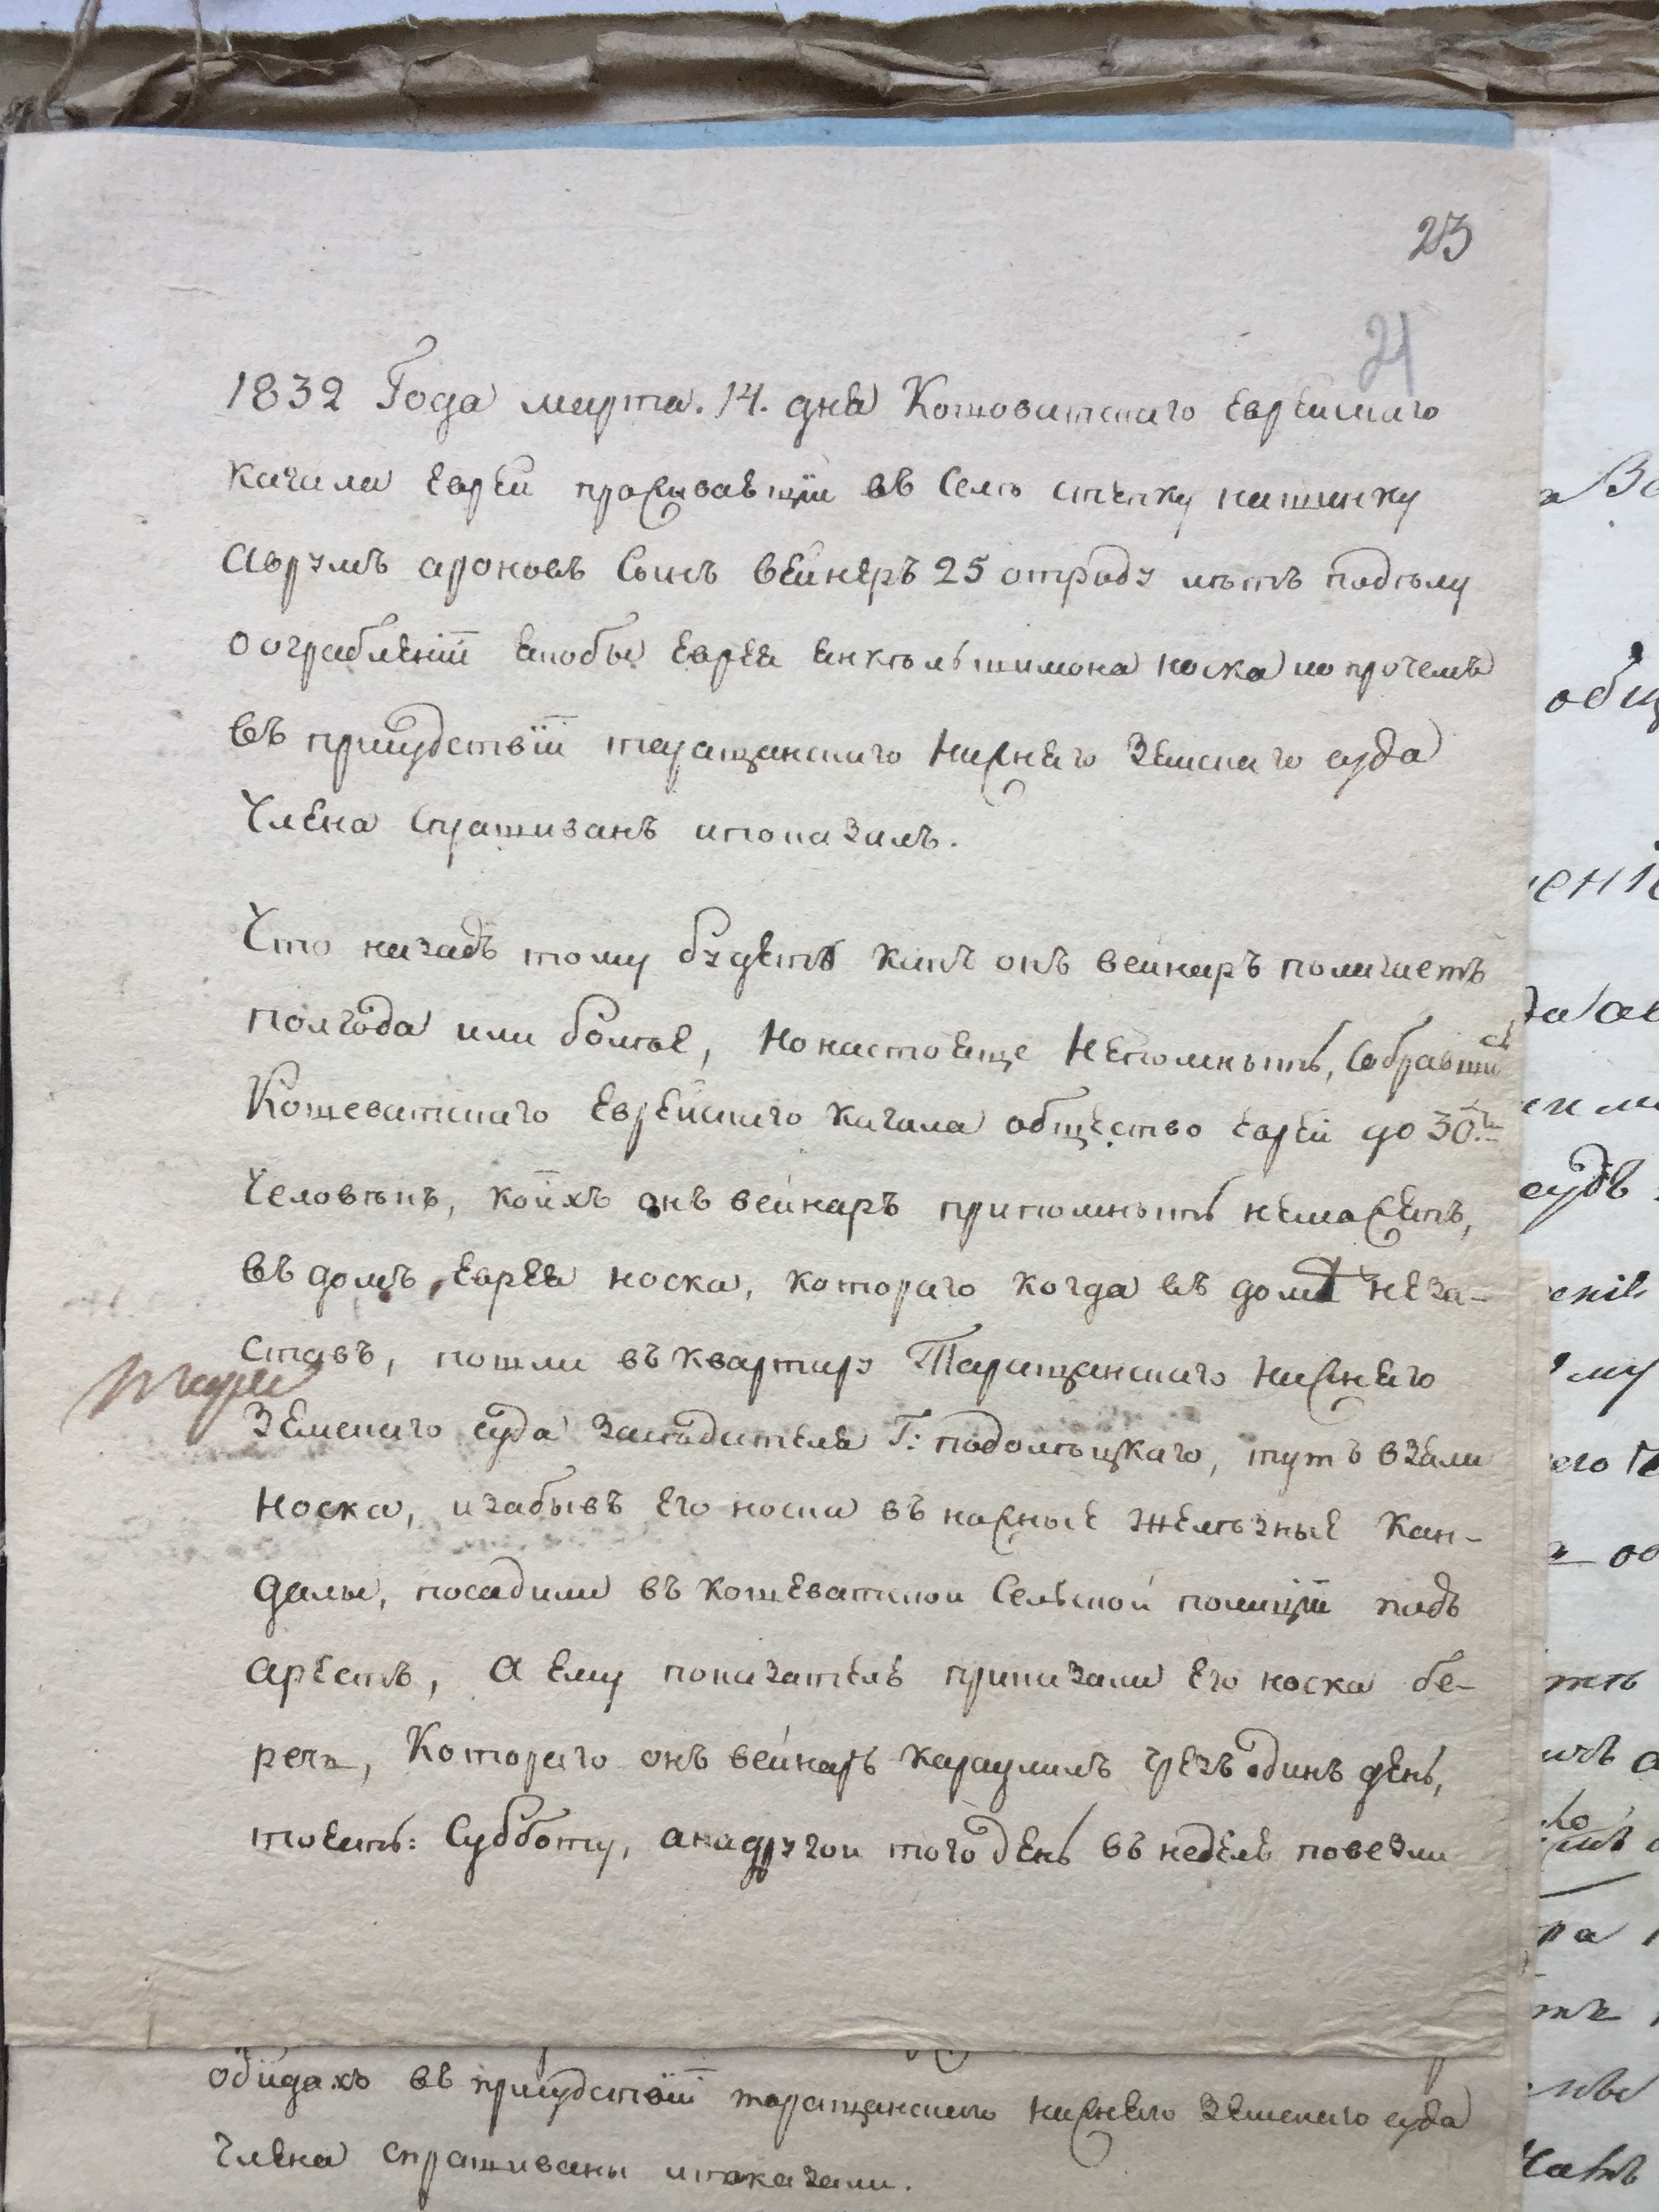 23
21
1832 Года марта. 14. дня Кошоватскаго Еврейскаго
кагала Еврей проживающїй въ Селѣ
Аврумъ ароновъ Сынъ вейнеръ 25 отроду лѣтъ подѣлу
о ограбленїи якобы Еврея янкѣль шимона носка ипрочемъ
въ присудствїи таращанскаго Нижняго Земскаго суда
Члена Спрашиванъ ипоказалъ.
Что назадъ тому будетъ какъ онъ вейнаръ полагаетъ
полгода или болѣе, Нонастояще Непомнытъ, Собравши
Кошеватскаго Еврейскаго кагала общество Еврей до 30.ти
Человѣкъ, коихъ онъ вейнаръ припомнытъ неможетъ,
въ домъ Еврея носка, котораго когда въ домѣ неза-
ставъ, пошли въ квартиру Таращанскаго Нижняго
Земскаго суда Засѣдателя Г: подолѣцкаго, тутъ взяли
Носка, изабывъ Его носка въ ножные желѣзные Кан-
далы, посадили въ кошеватской Сельской полицїи подъ
арестъ, а ему показателѣ приказали Его носка бе-
речь, Котораго онъ вейнаръ караулилъ чрезъ одинъ день,
тоесть: Субботу, анадругой того день въ неделѣ повезли
обидахъ въ присудствїи таращанскаго нижняго Земскаго суда
Члена спрашиваны ипоказали.